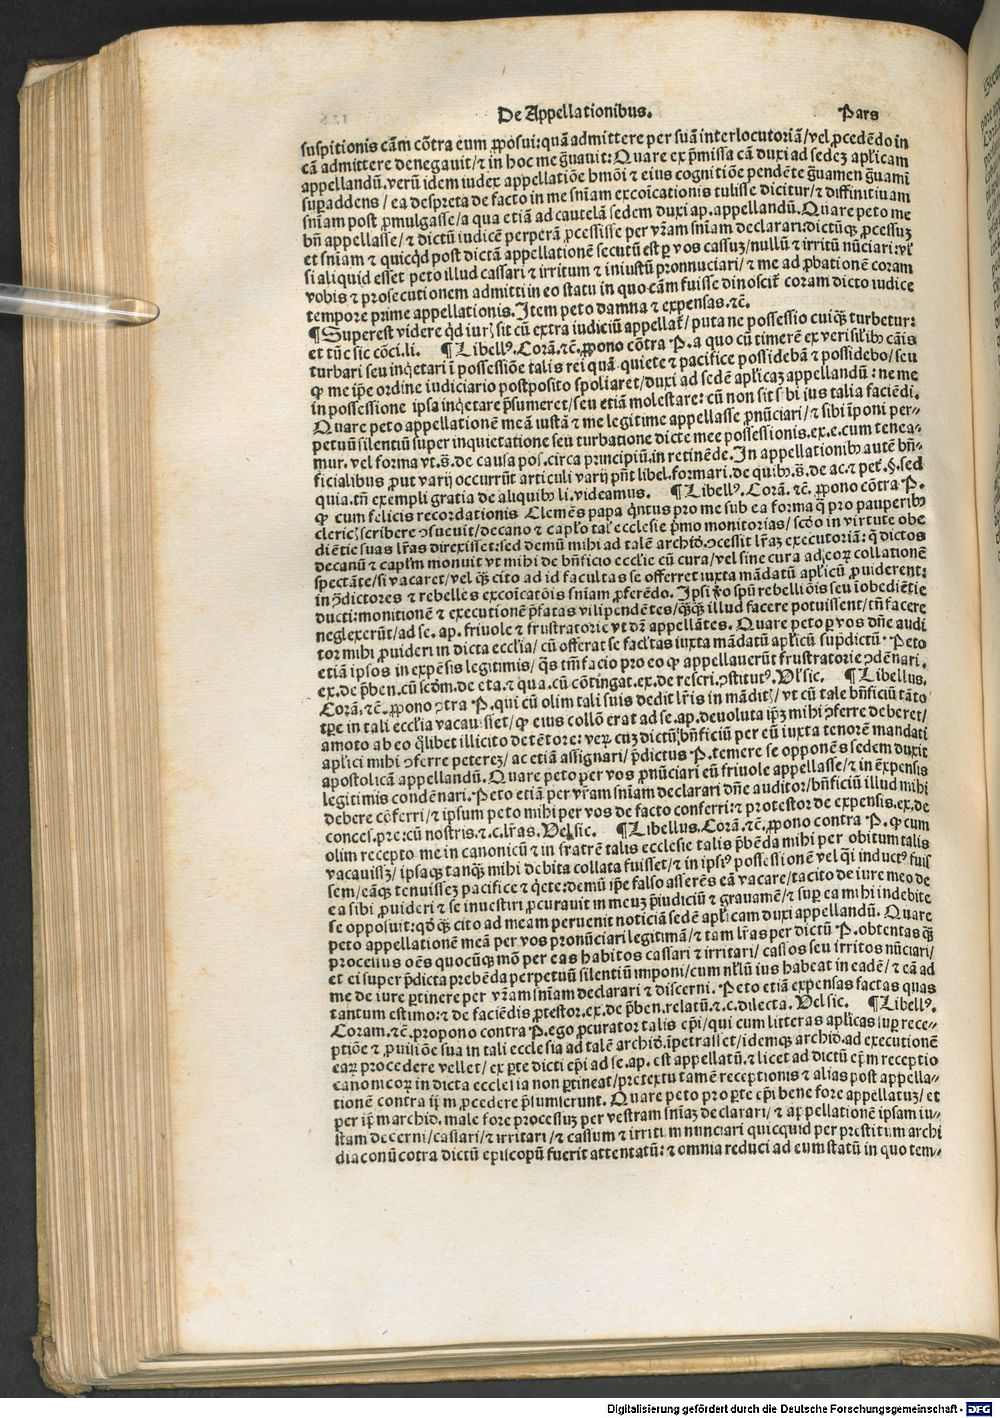 De Appellationibus. Pars
suspitionis cãm cõtra eum ꝓposui: quã admittere per suã interlocutoriã / vel ꝓcedẽdo in
cã admittere denegauit / ⁊ in hoc me g̃uauit: Quare ex p̃missa cã duxi ad sedeꝫ apl̃icam
appellandũ. verũ idem iudex appellatiõe hmõi ⁊ eius cognitiõe pendẽte g̃uamen g̃uami
suꝑaddens / ea despreta de facto in me sniam excoĩcationis tulisse dicitur / ⁊ diffinitiuam
sniam post ꝓmulgasse / a qua etiã ad cautelã sedem duxi ap. appellandũ. Quare peto me
bñ appellasse / ⁊ dictũ iudicẽ perperã ꝓcessisse per vr̃am sniam declarari: dictũqꝫ ꝓcessuꝫ
et sniam ⁊ quicq̃d post dictã appellationẽ secutũ est ꝑ vos cassuꝫ / nullũ ⁊ irritũ nũciari: vl̕
si aliquid esset peto illud cassari ⁊ irritum ⁊ iniustũ pronnuciari / ⁊ me ad ꝓbationẽ coram
vobis ⁊ prosecutionem admitti in eo statu in quo cãm fuisse dinoscit̃ coram dicto iudice
tempore prime appellationis. Item peto damna ⁊ expensas. ⁊c̃.
¶ Superest videre q̃d iur̃ sit cũ extra iudiciũ appellat̃ / puta ne possessio cuiqꝫ turbetur:
et tũc sic cõci. li. ¶ Libell⁹. Corã. ⁊c̃. ꝓpono cõtra P. a quo cũ timerẽ ex verisil̕ibꝰ cãis
turbari seu inq̃etari ĩ possessiõe talis rei quã quiete ⁊ pacifice possidebã ⁊ possidebo / seu
ꝙ me ip̃e ordine iudiciario postposito spoliaret / duxi ad sedẽ apl̃icaꝫ appellandũ: ne me
in possessione ipsa inq̃etare p̃sumeret / seu etiã molestare: cũ non sit sibi ius talia faciẽdi.
Quare peto appellationẽ meã iustã ⁊ me legitime appellasse ꝓnũciari / ⁊ sibi ĩponi per⸗
petuũ silentiũ super inquietatione seu turbatione dicte mee possessionis. ex. e. cum tenea⸗
mur. vel forma vt. s̃. de causa pos. circa principiũ. in retinẽde. In appellationibꝰ autẽ bñ⸗
ficialibus ꝓut varij occurrũt articuli varij pñt libel. formari. de quibꝰ. s̃. de ac. ⁊ pet̃. §. sed
quia. tñ exempli gratia de aliquibꝰ li. videamus. ¶ Libell⁹. Corã. ⁊c̃. ꝓpono cõtra P.
ꝙ cum felicis recordationis Clemẽs papa q̃ntus pro me sub ea forma q̃ pro pauperibꝰ
cleric̃ scribere ↄsueuit / decano ⁊ capl̃o tal̕ ecclesie p̃mo monitorias / scđo in virtute obe
diẽtie suas lr̃as direxisset: sed demũ mihi ad talẽ archiđ. ↄcessit lr̃aꝫ executoriã: q̃ dictos
decanũ ⁊ capl̃m monuit vt mihi de bñficio eccl̃ie cũ cura / vel sine cura ad eoꝝ collationẽ
spectãte / si vacaret / vel q̃ꝫ cito ad id facultas se offerret iuxta mãdatũ apl̃icũ ꝓuiderent:
in ↄ̃dictores ⁊ rebelles excoĩcatõis sniam ꝓferẽdo. Ipsi ꝟo spũ rebelliõis seu ĩobediẽtie
ducti: monitionẽ ⁊ executionẽ p̃fatas vilipendẽtes / q̃ꝫqꝫ illud facere potuissent / tñ facere
neglexerũt / ad se. ap. friuole ⁊ frustratorie vt dz̃ appellãtes. Quare peto ꝑ vos dñe audi
tor mihi ꝓuideri in dicta eccl̃ia / cũ offerat se facl̃tas iuxta mãdatũ apl̃icũ sup̃dictũ. Peto
etiã ipsos in expẽsis legitimis / q̃s tm̃ facio pro eo ꝙ appellauerũt frustratorie ↄdẽnari.
ex. de p̃ben. cũ secđm. de eta. ⁊ qua. cũ cõtingat. ex. de rescri. ↄstitut⁹. Vl̕ sic. ¶ Libellus.
Corã. ⁊c̃. ꝓpono ↄtra P. qui cũ olim tali suis dedit lr̃is in mãdit̃ / vt cũ tale bñficiũ tãto
tp̃e in tali eccl̃ia vacauisset / ꝙ eius collõ erat ad se. ap. deuoluta ip̃ꝫ mihi ↄferre deberet /
amoto ab eo q̃libet illicito detẽtore: veꝝ cuꝫ dictũ bñficiũ per eũ iuxta tenorẽ mandati
apl̃ici mihi ↄferre petereꝫ / ac etiã assignari / p̃dictus P. temere se opponẽs sedem duxit
apostolicã appellandũ. Quare peto per vos ꝓnũciari eũ friuole appellasse / ⁊ in ẽxpensis
legitimis condẽnari. Peto etiã per vr̃am sniam declarari dñe auditor / bñficiũ illud mihi
debere cõferri / ⁊ ipsum peto mihi per vos de facto conferri: ⁊ protestor de expensis. ex. de
conces. pre: cũ nostris. ⁊. c. lr̃as. Vel sic. ¶ Libellus. Corã. ⁊c̃. ꝓpono contra P. ꝙ cum
olim recepto me in canonicũ ⁊ in fratrẽ talis ecclesie talis p̃bẽda mihi per obitum talis
vacauissꝫ / ipsaqꝫ tanq̃ꝫ mihi debita collata fuisset / ⁊ in ipsi⁹ possessionẽ vel q̃i induct⁹ fuis
sem / eãqꝫ tenuisseꝫ pacifice ⁊ q̃ete: demũ ip̃e falso asserẽs eã vacare / tacito de iure meo de
ea sibi ꝓuideri ⁊ se inuestiri ꝓcurauit in meuꝫ p̃iudiciũ ⁊ grauamẽ / ⁊ suꝑ ea mihi indebite
se opposuit: qđ q̃ꝫ cito ad meam peruenit noticiã sedẽ apl̃icam duxi appellandũ. Quare
peto appellationẽ meã per vos pronũciari legitimã / ⁊ tam lr̃as per dictũ P. obtentas q̃ꝫ
processus oẽs quocũqꝫ mõ per eas habitos cassari ⁊ irritari / cassos seu irritos nũciari /
et ei super p̃dicta prebẽda perpetuũ silentiũ imponi / cum nl̕lũ ius habeat in eadẽ / ⁊ eã ad
me de iure ꝑtinere per vr̃am sniam declarari ⁊ discerni. Peto etiã expensas factas quas
tantum estimo: ⁊ de faciẽdis ꝓtestor. ex. de p̃ben. relatũ. ⁊. c. dilecta. Vel sic. ¶ Libell⁹.
Coram. ⁊c̃. propono contra P. ego ꝓcurator talis ep̃i / qui cum litteras apl̃icas suꝑ rece⸗
ptiõe ⁊ ꝓuisiõe sua in tali ecclesia ad talẽ archiđ. ĩpetrasset / idemqꝫ archiđ. ad executionẽ
eaꝝ procedere vellet / ex ꝑte dicti ep̃i ad se. ap. est appellatũ. ⁊ licet ad dictũ ep̃m receptio
canonicoꝝ in dicta ecclesia non ꝑtineat / pretextu tamẽ receptionis ⁊ alias post appella⸗
tionẽ contra ip̃m ꝓcedere p̃sumserunt. Quare peto pro ꝑte ep̃i bene fore appellatuꝫ / et
per ip̃m archiđ. male fore processuꝫ per vestram sniaꝫ declarari / ⁊ appellationẽ ipsam iu⸗
stam decerni / cassari / ⁊ irritari / ⁊ cassum ⁊ irritum nunciari quicquid per prestitum archi
diaconũ cotra dictũ episcopũ fuerit attentatũ: ⁊ omnia reduci ad eum statũ in quo tem⸗
Digitalisierung gefördert durch die Deutsche Forschungsgemeinschaft - DFG